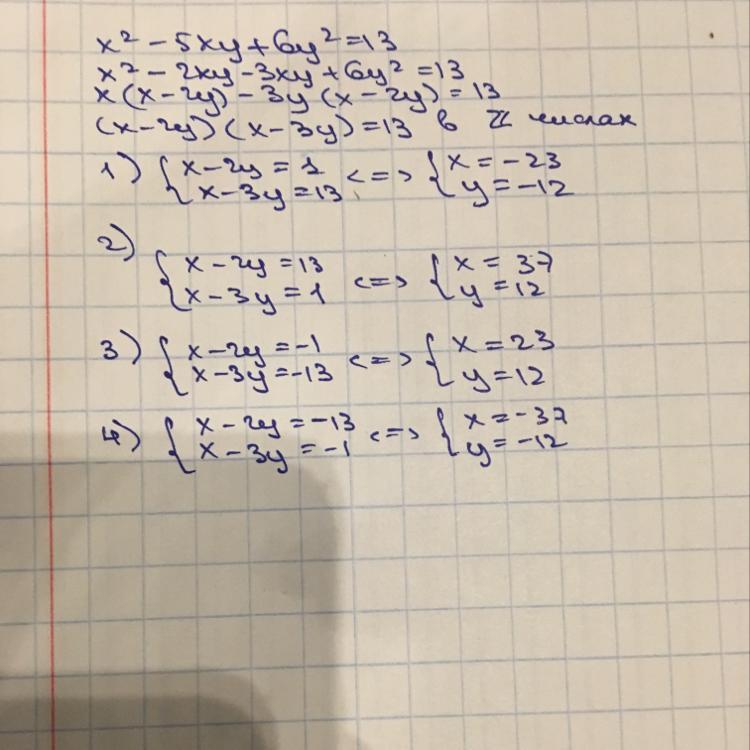 x² - 5xy + 6y² = 13
x² - 2xy - 3xy + 6y² = 13
x(x - 2y) - 3y(x - 2y) = 13
(x - 2y)(x - 3y) = 13 в ℤ числах
1) { x - 2y = 1 <=> { x = -23
x - 3y = 13 y = -12
2) { x - 2y = 13 <=> { x = 37
x - 3y = 1 y = 12
3) { x - 2y = -1 <=> { x = 23
x - 3y = -13 y = 12
4) { x - 2y = -13 <=> { x = -37
x - 3y = -1 y = -12